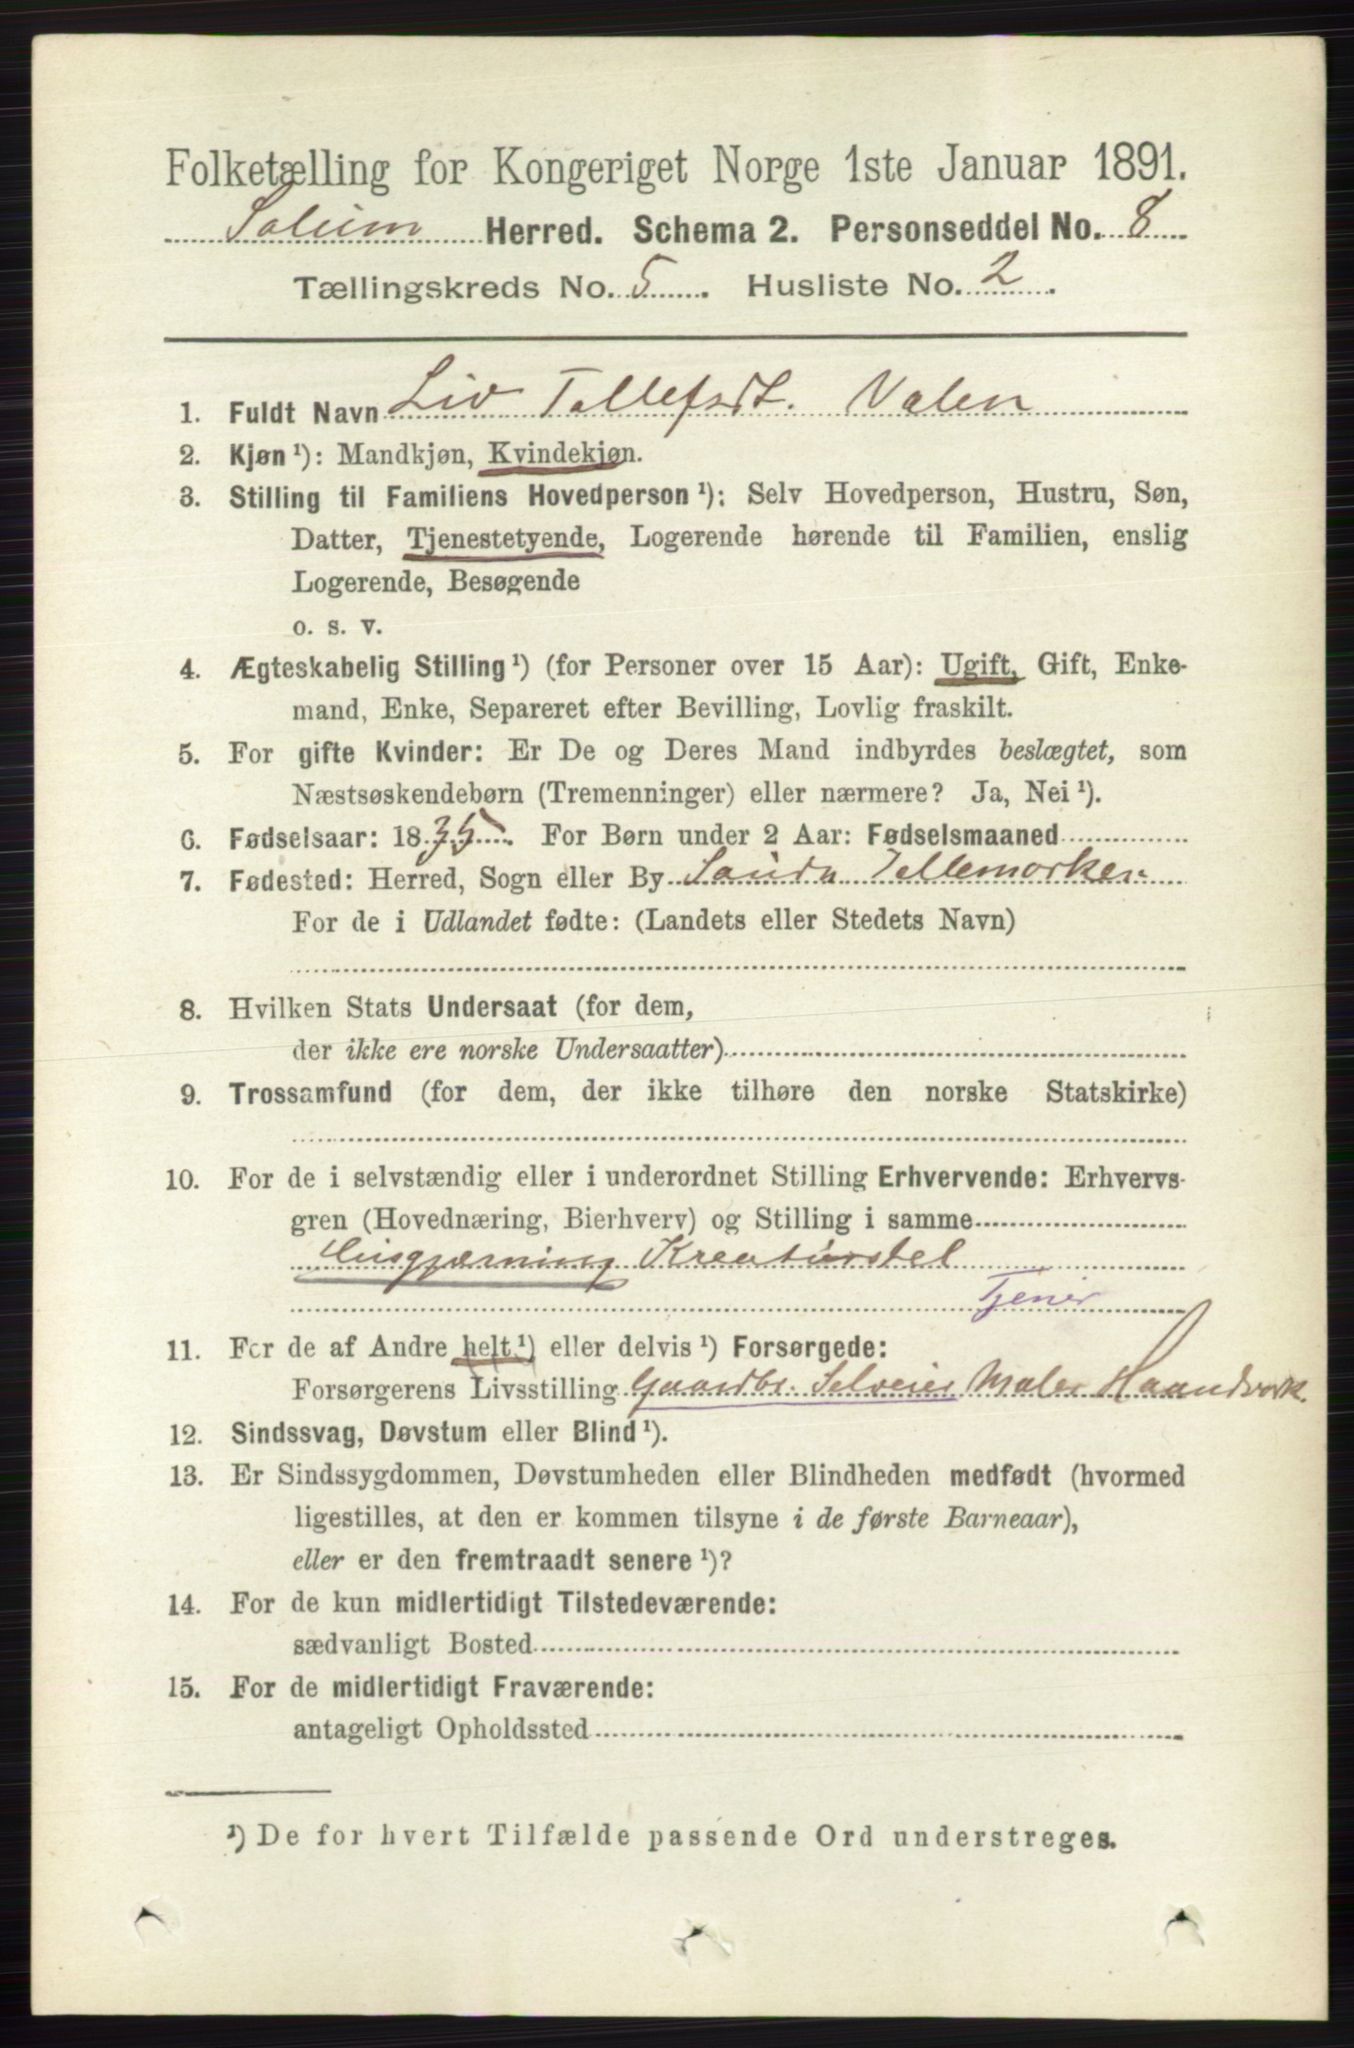 Folketælling for Kongeriget Norge 1ste Januar 1891.
Solum Herred. Schema 2. Personseddel No. 8
Tællingskreds No. 5. Husliste No. 2.
1. Fuldt Navn Liv Tollefsdt. Valen
2. Kjøn ¹): Mandkjøn, Kvindekjøn.
3. Stilling til Familiens Hovedperson ¹): Selv Hovedperson, Hustru, Søn,
Datter, Tjenestetyende, Logerende hørende til Familien, enslig
Logerende, Besøgende
o. s. v.
4. Ægteskabelig Stilling ¹) (for Personer over 15 Aar): Ugift, Gift, Enke-
mand, Enke, Separeret efter Bevilling, Lovlig fraskilt.
5. For gifte Kvinder: Er De og Deres Mand indbyrdes beslægtet, som
Næstsøskendebørn (Tremenninger) eller nærmere? Ja, Nei ¹).
6. Fødselsaar: 1835. For Børn under 2 Aar: Fødselsmaaned
7. Fødested: Herred, Sogn eller By Saude Tellemorken
For de i Udlandet fødte: (Landets eller Stedets Navn)
8. Hvilken Stats Undersaat (for dem,
der ikke ere norske Undersaatter)
9. Trossamfund (for dem, der ikke tilhøre den norske Statskirke)
10. For de i selvstændig eller i underordnet Stilling Erhvervende: Erhvervs-
gren (Hovednæring, Bierhverv) og Stilling i samme
Husgjærning Kreaturstel
Tjener
11. For de af Andre helt ¹) eller delvis ¹) Forsørgede:
Forsørgerens Livsstilling Gaardbr. Selveier Maler Haandverk.
12. Sindssvag, Døvstum eller Blind ¹).
13. Er Sindssygdommen, Døvstumheden eller Blindheden medfødt (hvormed
ligestilles, at den er kommen tilsyne i de første Barneaar),
eller er den fremtraadt senere ¹)?
14. For de kun midlertidigt Tilstedeværende:
sædvanligt Bosted
15. For de midlertidigt Fraværende:
antageligt Opholdssted
¹) De for hvert Tilfælde passende Ord understreges.